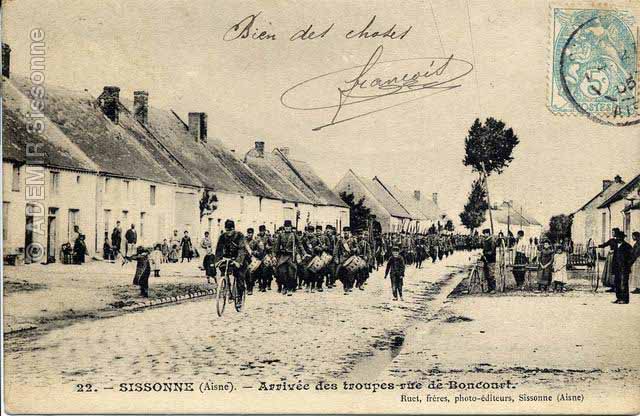 Bien des choses
françois
© ADEMIR Sissonne
5
POSTES
22. – SISSONNE (Aisne). – Arrivée des troupes rue de Boncourt.
Ruet, frères, photo-éditeurs, Sissonne (Aisne)